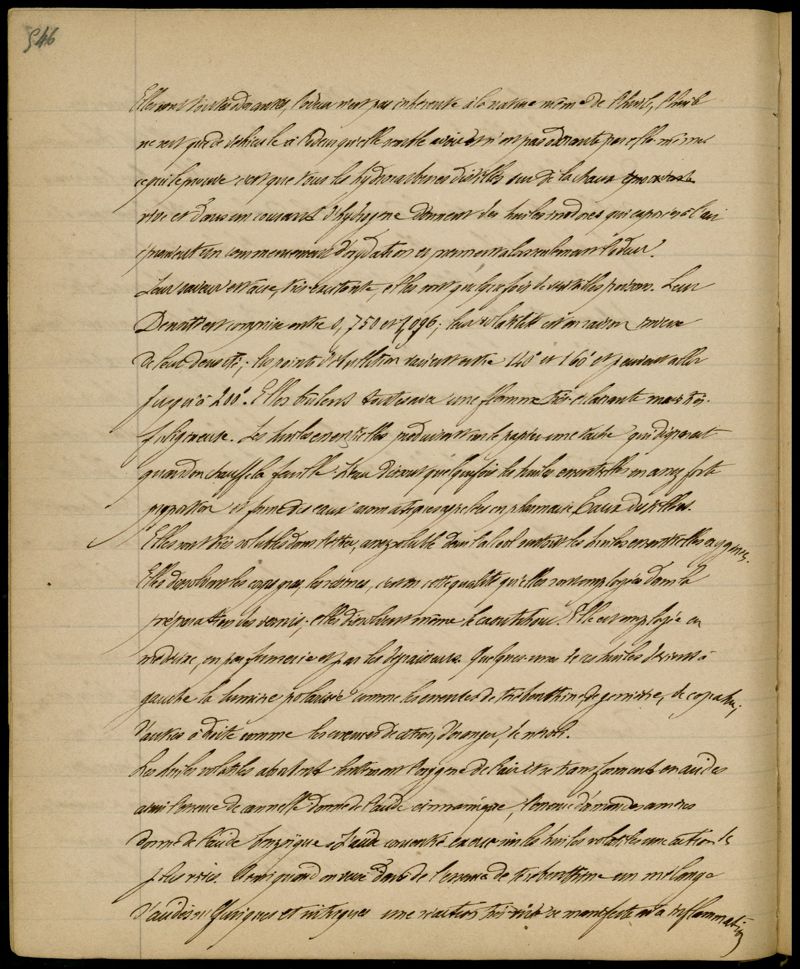 546
Elles sont toutes odorantes, l'odeur n'est pas inhérente à la nature même de l'huile, l'huile
ne sert que de véhicule à l'odeur qu'elle semble avoir et n'est pas odorante par elle même
ce qui le prouve c'est que tous les hydrocarbones distillés sur de la chaux
vive et dans un courant d'hydrogène donnent des huiles inodores qui exposées à l'air
éprouvent un commencement d'oxydation et prennent alors seulement l'odeur.
Leur saveur est âcre, très excitante, elles sont quelquefois de véritables poisons. Leur
Densité est comprise entre 0,750 et 1,096; leur volatilité est en raison inverse
de leur densité; les points d'ébullition varient entre 140° et 160° et peuvent aller
jusqu'à 200°. Elles brulent toutes avec une flamme très éclairante mais très
fuligineuse. Les huiles essentielles produisent sur le papier une tache qui disparait
quand on chauffe la feuille. L'eau dissout quelquefois les huiles essentielles en assez forte
proportion et forme des eaux aromatiques appelées en pharmacie Eaux distillées.
Elles sont très solubles dans l'éther, assez soluble dans l'alcool surtout les huiles essentielles oxygénées.
Elles dissolvent les corps gras, les résines, c'est en cette qualité qu'elles sont employées dans la
préparation des vernis; elles dissolvent même le caoutchouc. Elle est employée en
médecine, en parfumerie et par les dégraisseurs. Quelques unes de ces huiles dévient à
gauche la lumière polarisée comme les essences de térébenthine, de genièvre, de copahu;
d'autres à droite comme les essences de citron, d'oranger, de néroli.
Les huiles volatiles absorbent lentement l'oxygène de l'air et se transforment en acides
ainsi l'essence de cannelle donne de l'acide cinnamique, l'essence d'amandes amères
donne de l'acide benzoïque. L'acide concentré exerce sur les huiles volatiles une action des
plus vives. Ainsi quand on verse dans de l'essence de térébenthine un mélange
d'acides sulfuriques et nitriques une réaction très vive se manifeste et a inflammation